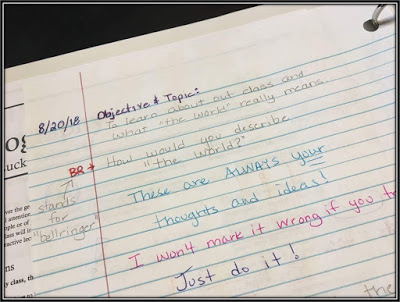 8/20/18 Objective & Topic:
To learn about out class and
what "the world" really means.
BR → How would you describe
"the world?"
stands
for
"bellringer"
These are ALWAYS your
thoughts and ideas!
I won't mark it wrong if you
Just do it!
the